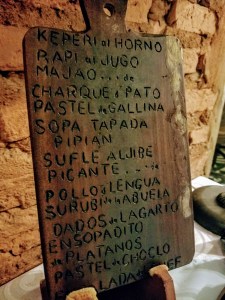 KEPERI al HORNO
RAPI al JUGO
MAJAO... de
CHARQUE ó PATO
PASTEL de GALLINA
SOPA TAPADA
PIPIAN
SUFLE ALJIBE
PICANTE... de
POLLO ó LENGUA
SURUBI de la ABUELA
DADOS de LAGARTO
ENSOPADITO
de PLATANOS
PASTEL de CHOCLO
LADA
EF